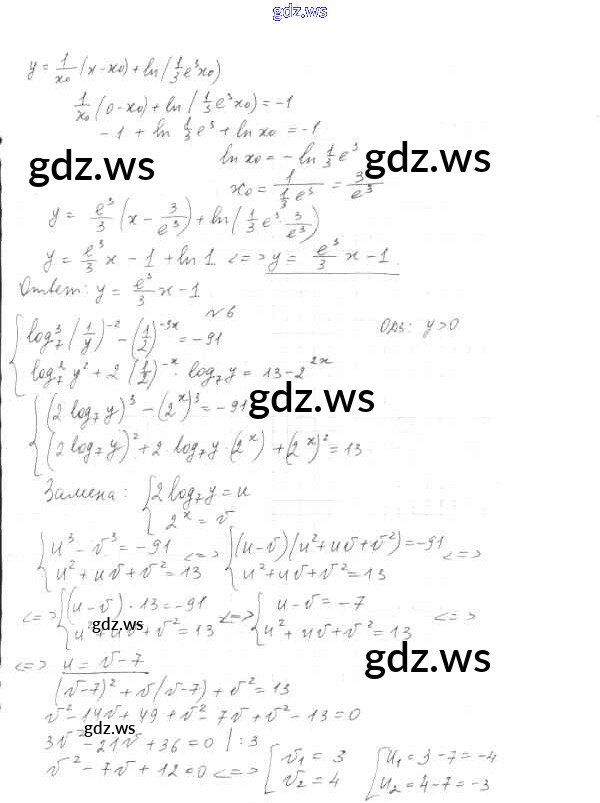 gdz.ws
y = 1/x₀ (x-x₀) + ln(1/3 e³x₀)
1/x₀ (0-x₀) + ln(1/3 e³x₀) = -1
-1 + ln 1/3 e³ + ln x₀ = -1
gdz.ws
ln x₀ = -ln 1/3 e³
gdz.ws
x₀ = 1/(1/3 e³) = 3/e³
y = e³/3 (x - 3/e³) + ln(1/3 e³ · 3/e³)
y = e³/3 x - 1 + ln 1 <=> y = e³/3 x - 1.
Ответ: y = e³/3 x - 1
№6
{ log₇³ (1/y)⁻² - (1/2)⁻³ˣ = -91
ОДЗ: y>0
log₇² y² + 2 (1/2)⁻ˣ · log₇ y = 13 - 2²ˣ
gdz.ws
{ (2 log₇ y)³ - (2ˣ)³ = -91
(2 log₇ y)² + 2 log₇ y · (2ˣ) + (2ˣ)² = 13
Замена: { 2 log₇ y = u
2ˣ = v
{ u³ - v³ = -91 <=> { (u-v)(u² + uv + v²) = -91 <=>
u² + uv + v² = 13 u² + uv + v² = 13
<=> { (u-v) · 13 = -91 <=> { u - v = -7 <=>
u² + uv + v² = 13 u² + uv + v² = 13
gdz.ws
gdz.ws
<=> u = v - 7
(v-7)² + v(v-7) + v² = 13
v² - 14v + 49 + v² - 7v + v² - 13 = 0
gdz.ws
3v² - 21v + 36 = 0 | : 3
v² - 7v + 12 = 0 <=> [ v₁ = 3 [ u₁ = 3 - 7 = -4
v₂ = 4 u₂ = 4 - 7 = -3